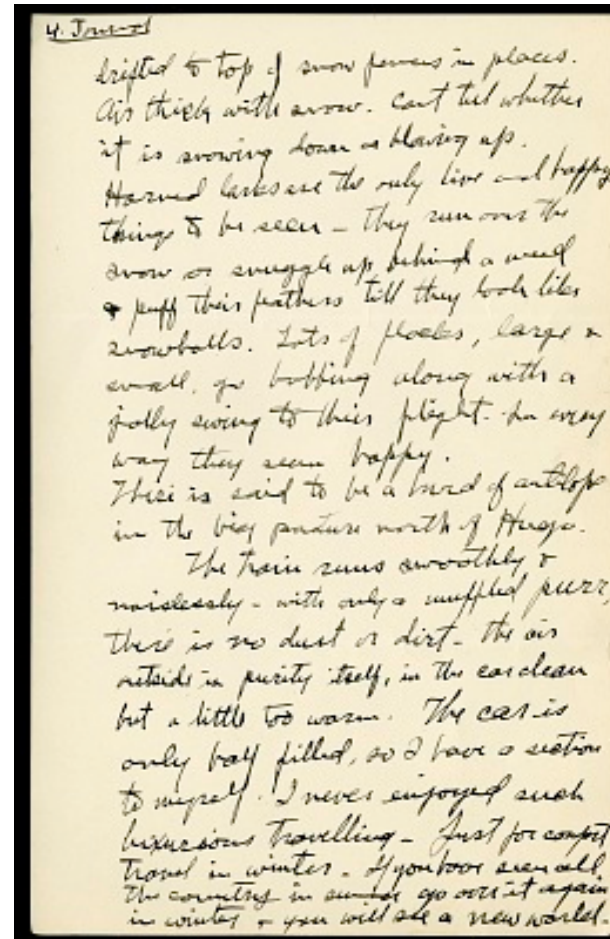 4. Journal
drifted to top of snow fences in places.
Air thick with snow. Cant tell whether
it is snowing down or blowing up.
Horned larks are the only live and happy
things to be seen - they run over the
snow or snuggle up behind a weed
& puff their feathers till they look like
snowballs. Lots of flocks, large &
small, go bobbing along with a
jolly swing to their flight. In every
way they seem happy.
There is said to be a herd of antelope
in the big pasture north of Hugo.
The train runs smoothly &
noiselessly - with only a muffled purr,
there is no dust or dirt - the air
outside is purity itself, in the car clean
but a little too warm. The car is
only half filled, so I have a section
to myself. I never enjoyed such
luxurious travelling - Just for comfort
travel in winter. If you have seen all
the country in go over it again
in winter & you will see a new world.